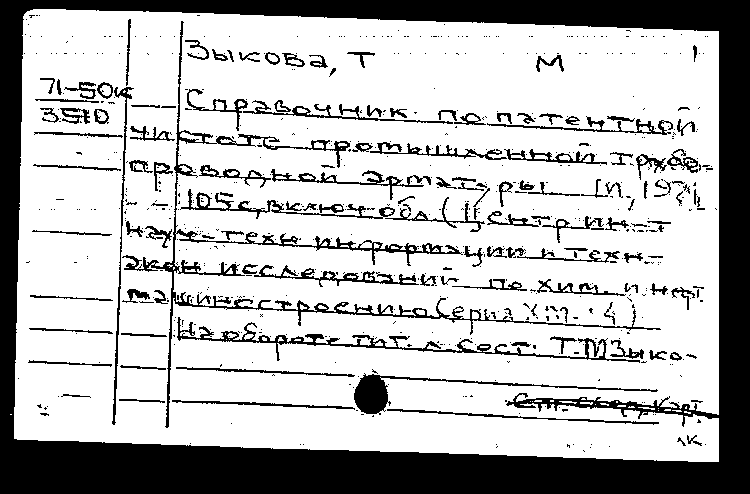 Зыкова, Т М 1
71-50к
3510
Справочник по патентной
чистоте промышленной трубо-
проводной арматуры М, 1971,
105 с, включ обл. (Центр ин-т
науч.-техн информации и техн.-
экон исследований по хим. и нефт.
машиностроению. Серия ХМ-4)
На обороте тит. л. сост: Т.М Зыко-
См. след. карт.